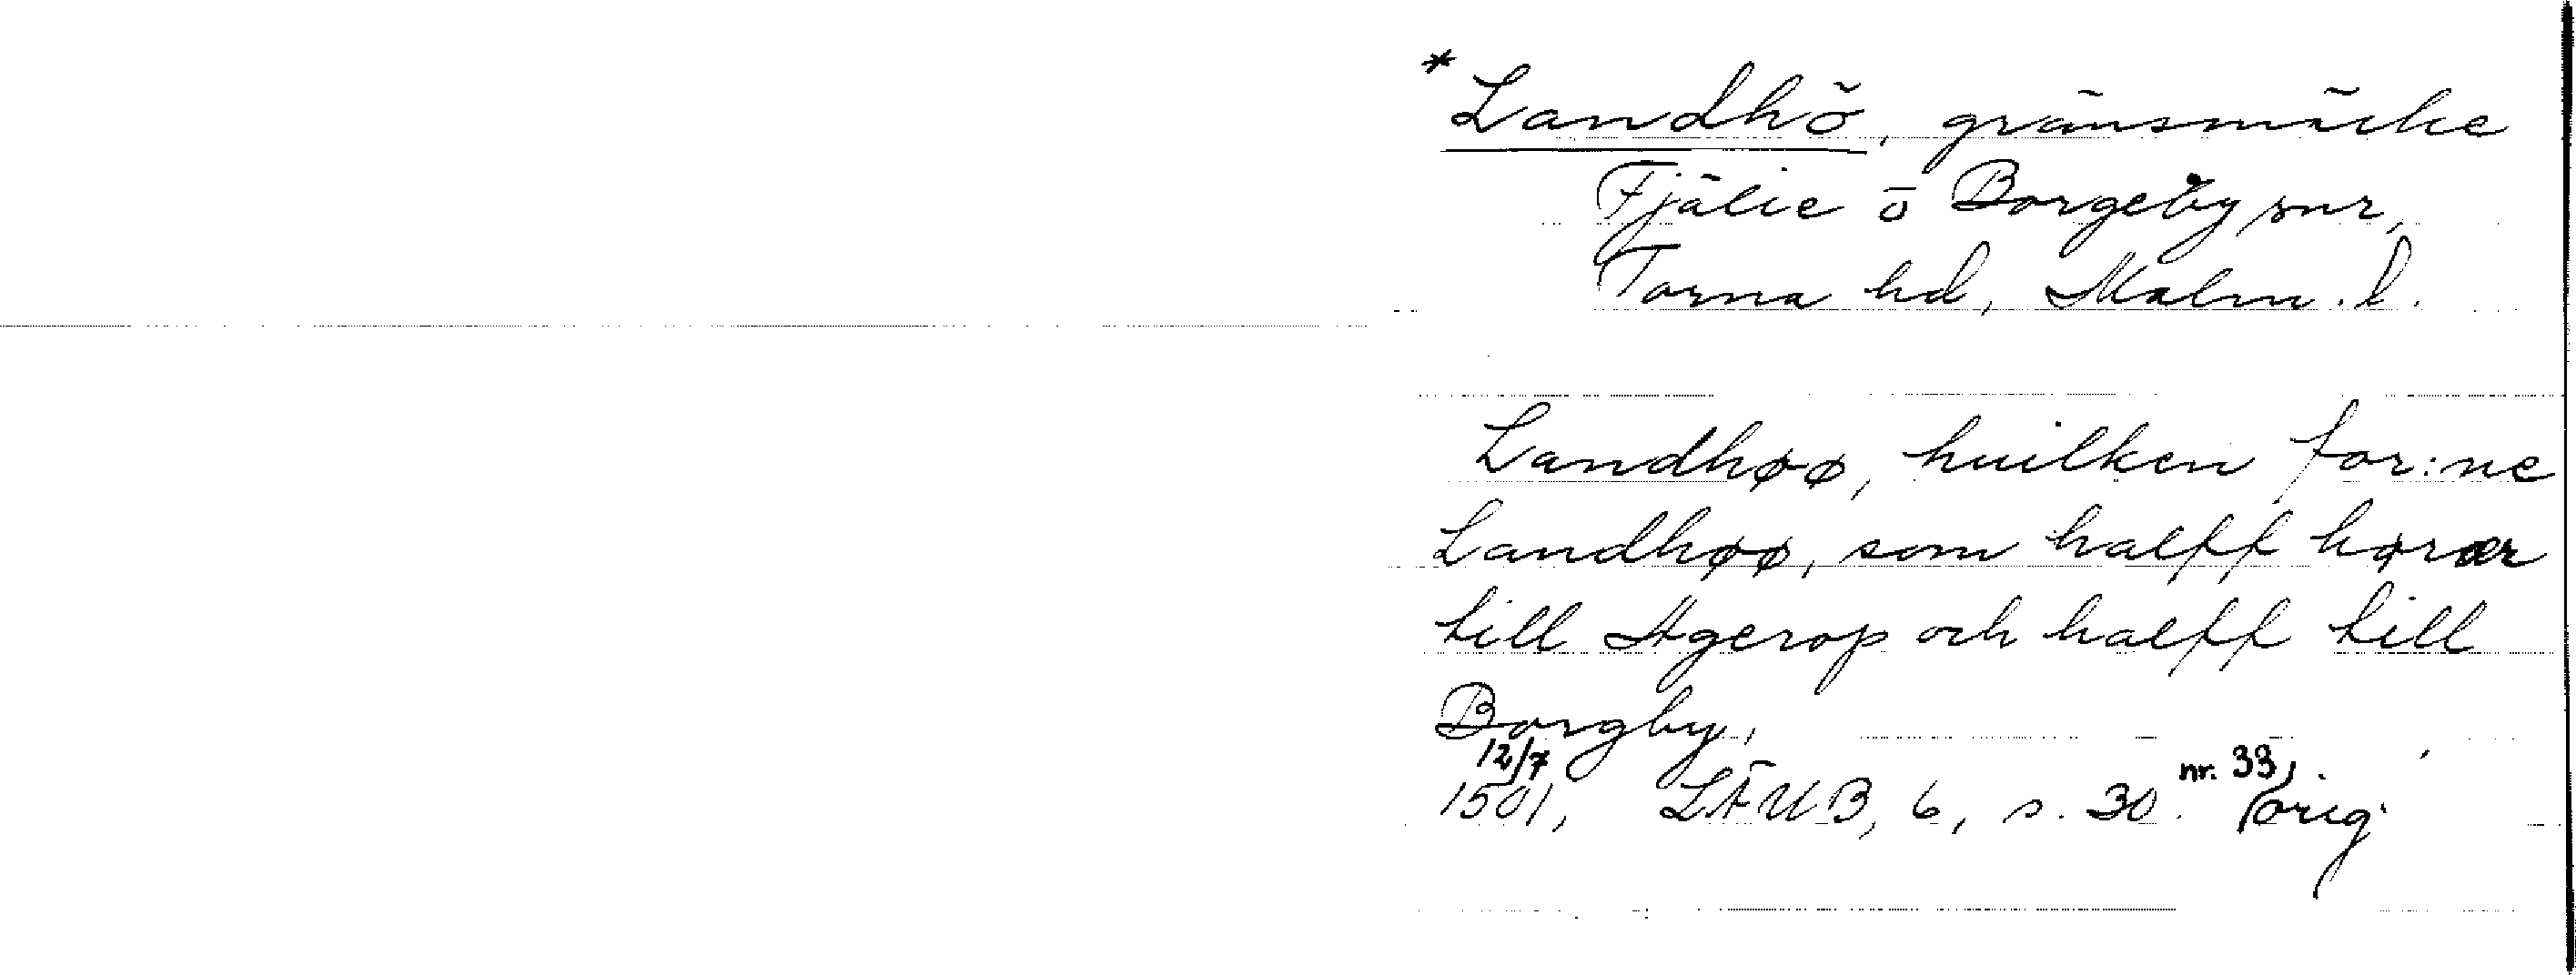 * Landhö, gränsmärke
Fjälie o Borgeby snr,
Torna hd, Malm. l.
Landhøø, huilken for:ne
Landhøø, som halff hørær
till Agerop och halff till
Borgby,
12/7
1501, LÄUB, 6, s. 30. nr. 33, orig.